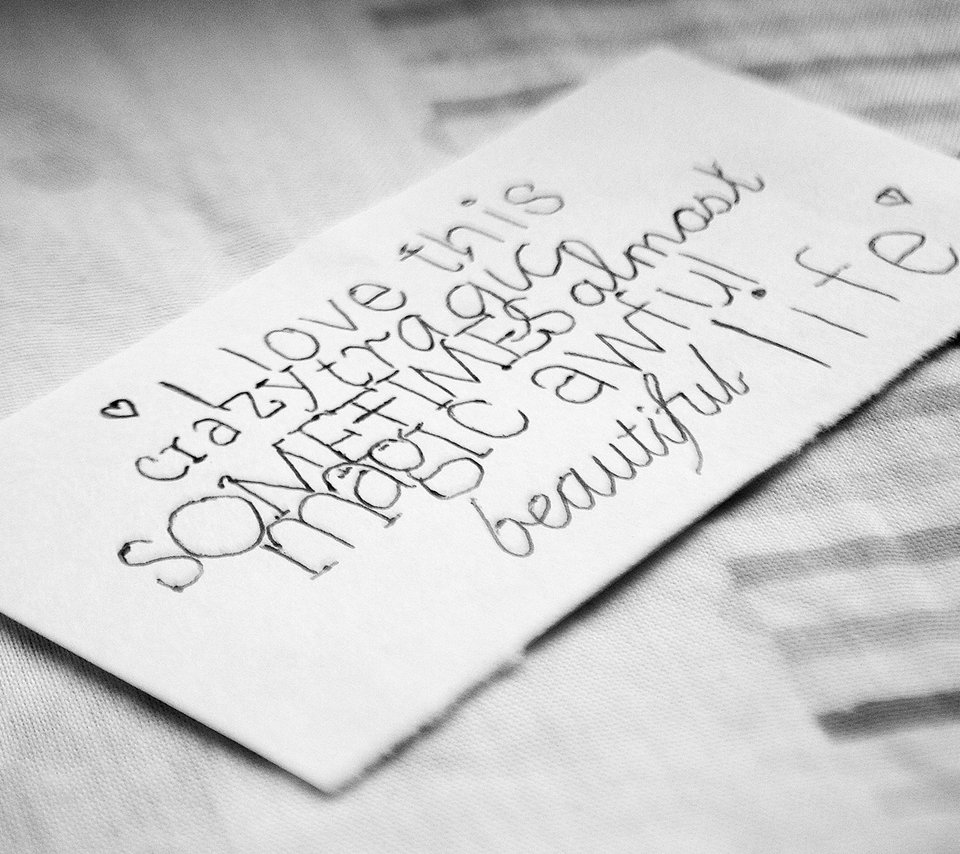 ♡ I love this
crazytragic
SOMETIMES almost
magic awful!
beautiful life ♡